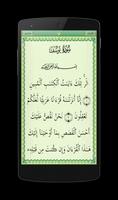 سُورَةُ يُوسُفَ
بِسْمِ اللَّهِ الرَّحْمَٰنِ الرَّحِيمِ
الٓر تِلْكَ ءَايَٰتُ ٱلْكِتَٰبِ ٱلْمُبِينِ
۝١ إِنَّآ أَنزَلْنَٰهُ قُرْءَٰنًا عَرَبِيًّا لَّعَلَّكُمْ
تَعْقِلُونَ ۝٢ نَحْنُ نَقُصُّ عَلَيْكَ
أَحْسَنَ ٱلْقَصَصِ بِمَآ أَوْحَيْنَآ إِلَيْكَ
هَٰذَا ٱلْقُرْءَانَ وَإِن كُنتَ مِن قَبْلِهِۦ